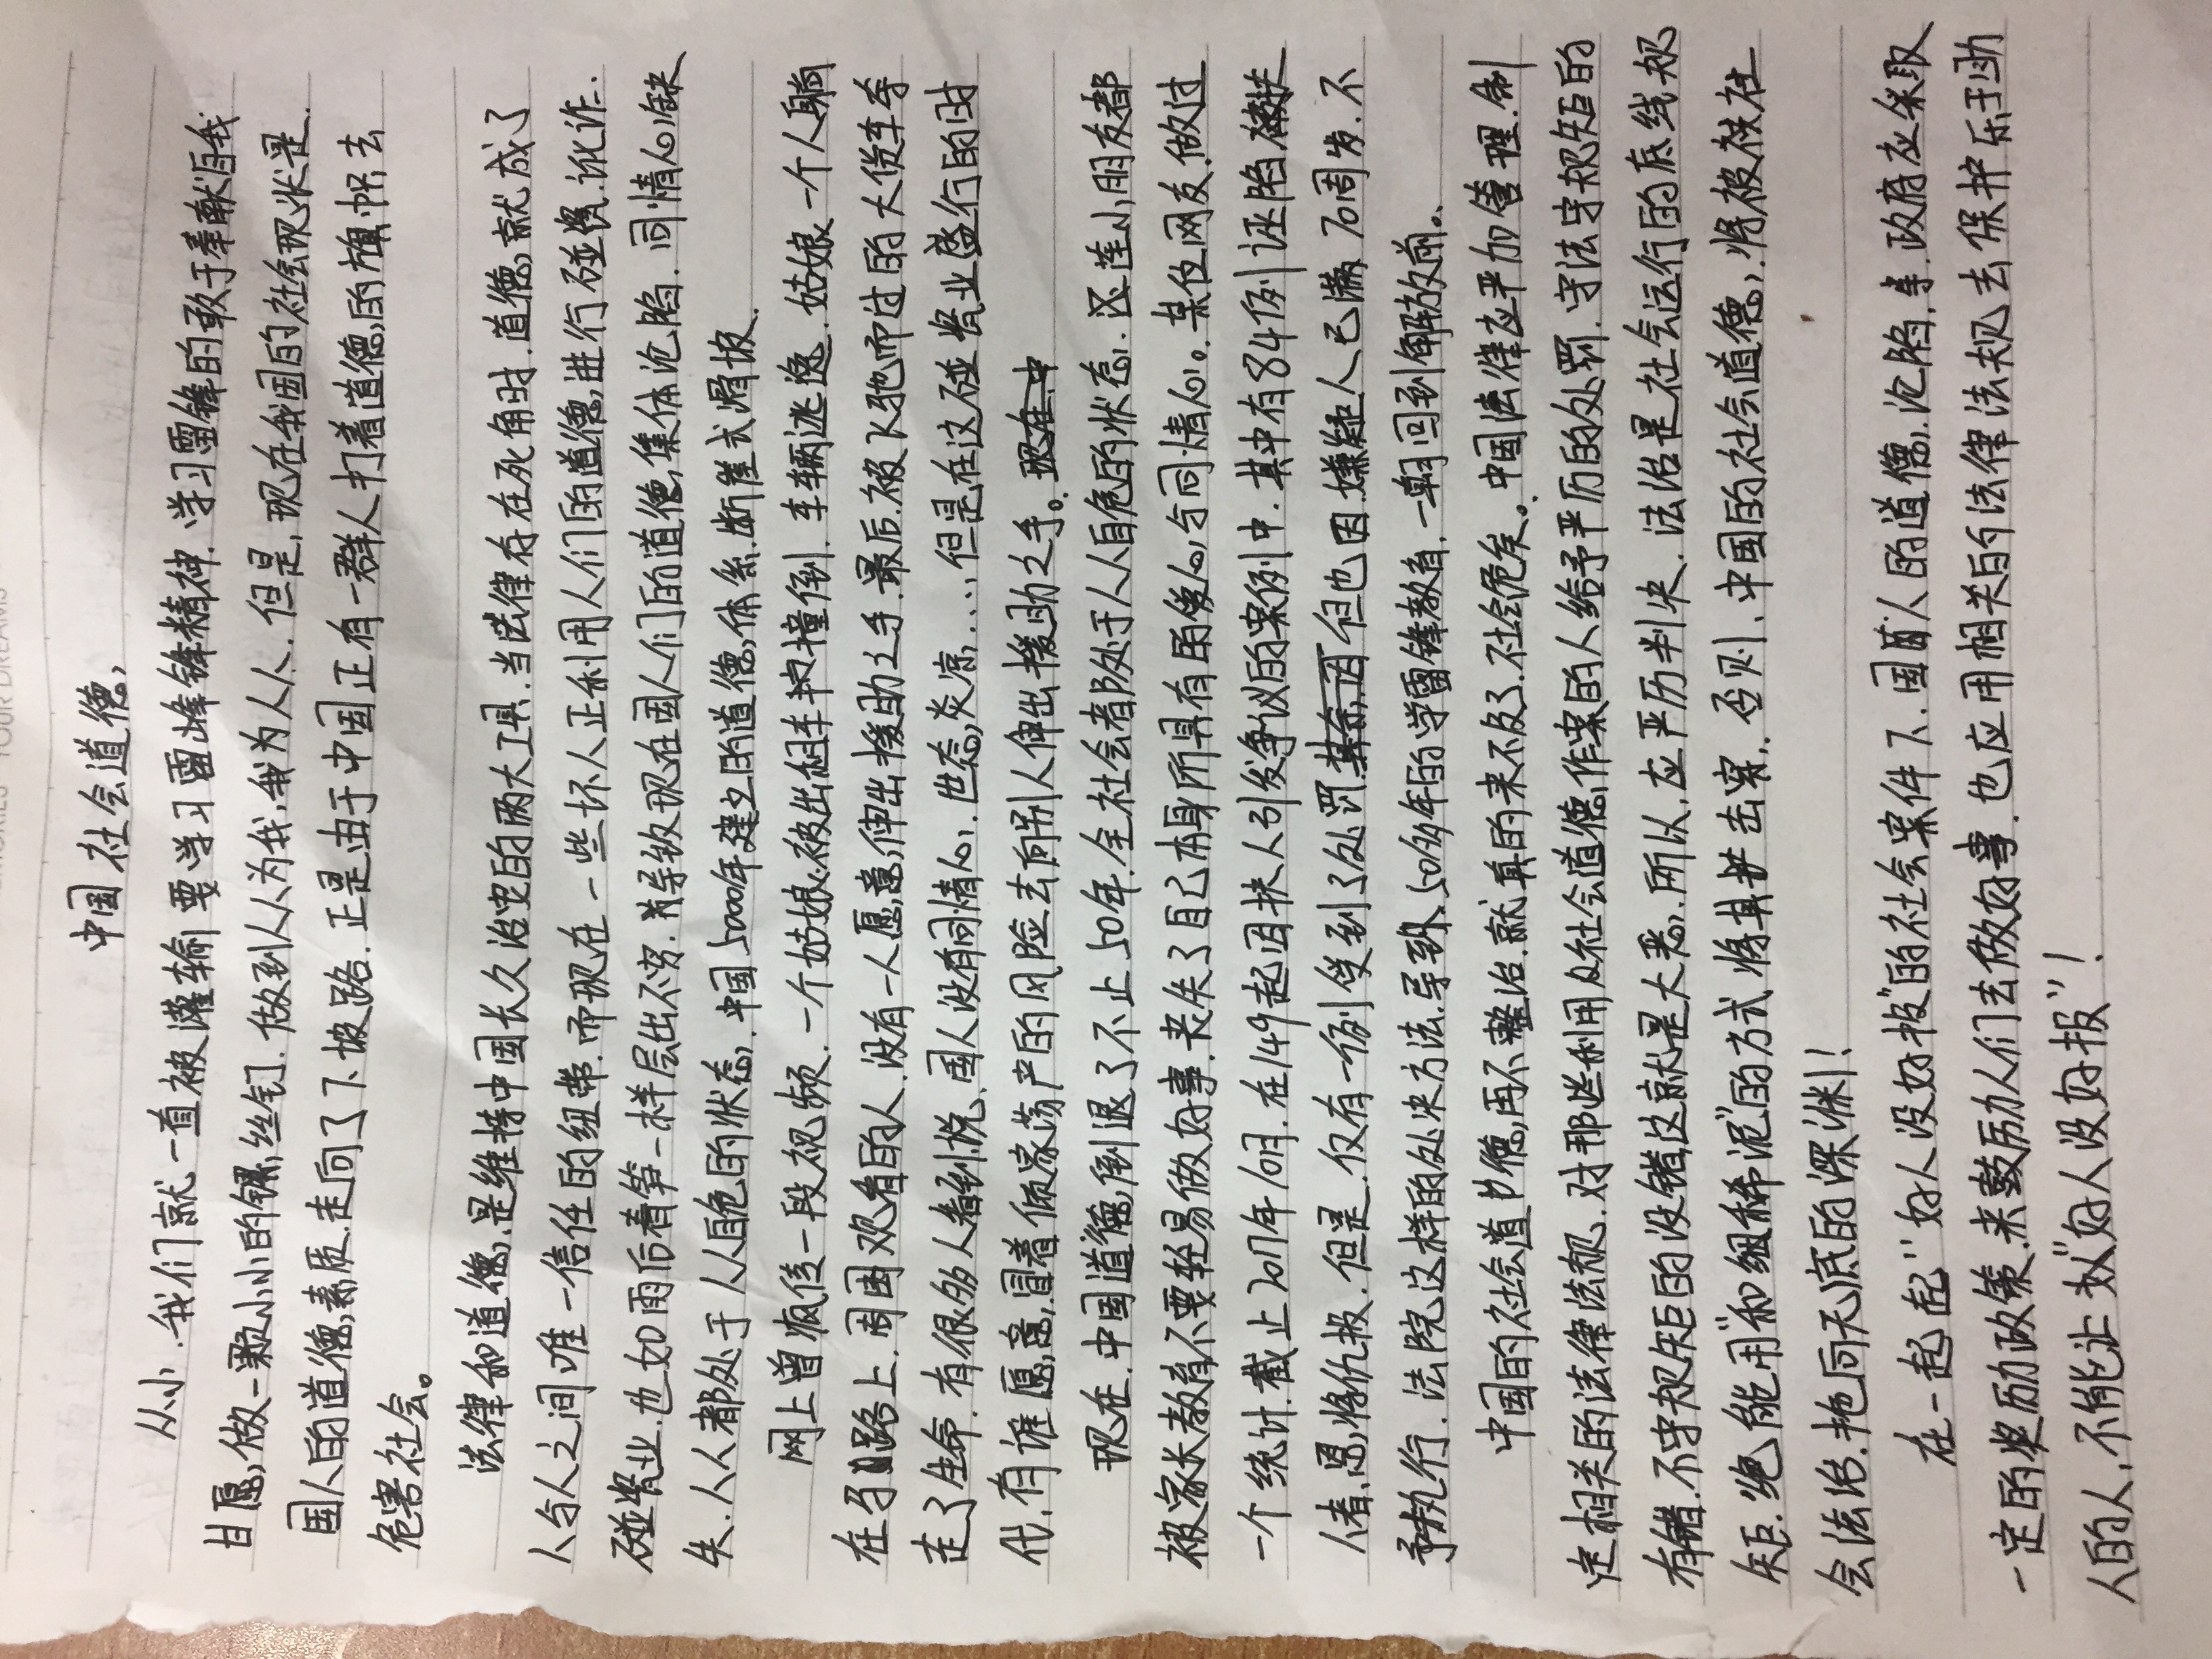 YOUR DREAMS
中国社会道德
从小.我们就一直被灌输要学习雷峰锋精神.学习雷锋的敢于奉献自我
甘愿做一颗小小的镙丝钉.做到人人为我,我为人人.但是.现在我国的社会现状是.
国人的道德素质.走向了下坡路.正是由于中国正有一群人打着道德的旗帜去
危害社会。
法律和道德,是维持中国长久治安的两大工具.当法律存在死角时.道德就成了
人与人之间唯一信任的纽带.而现在一些坏人正利用人们的道德进行碰瓷.讹诈.
碰瓷业也如雨后春笋一样层出不穷.导致现在国人们的道德集体沦陷.同情心缺
失.人人都处于人人自危的状态.中国5000年建立的道德体系.断崖式滑坡.
网上曾疯传一段视频.一个姑娘被出租车撞倒.车辆逃逸.姑娘一个人躺
在马路上.周围观看的人.没有一人愿意伸出援助之手.最后.被飞驰而过的大货车夺
走了生命.有很多人看到说.国人没有同情心.世态炎凉....但是在这碰瓷业盛行的时
代.有谁愿意冒着倾家荡产的风险去向别人伸出援助之手。现在.中
现在.中国道德倒退了不止50年.全社会都处于人人自危的状态.连小朋友都
被家长教育不要轻易做好事.丧失了自己本身所具有的爱心与同情心。某位网友做过
一个统计.截止2017年10月.在149起因扶人引发争议的案例中.其中有84例诬陷搀扶
人者,恩将仇报.但是.仅有一例受到了处罚.但也因嫌疑人已满70周岁.不
予执行.法院这样的处决方法.导致50多年的学雷锋教育.一朝回到解放前。
中国的社会道德再不整治.就真的来不及了.社会危矣。中国法律应严加管理.制
定相关的法律法规.对那些利用社会道德作案的人给予严历的处罚.守法守规矩的
有错.不守规矩的没错这就是大恶.所以.应严历判决.法治是社会运行的底线规
矩.绝能用"和细稀泥"的方式将其击穿.否则.中国的社会道德,将被扶在
会法治.拖向无底的深渊!
在一起起"好人没好报"的社会案件下.国人的道德沦陷.政府应采取
一定的奖历政策.来鼓励人们去做好事.也应用相关的法律法规去保护乐于助
人的人,不能让"好人没好报"!